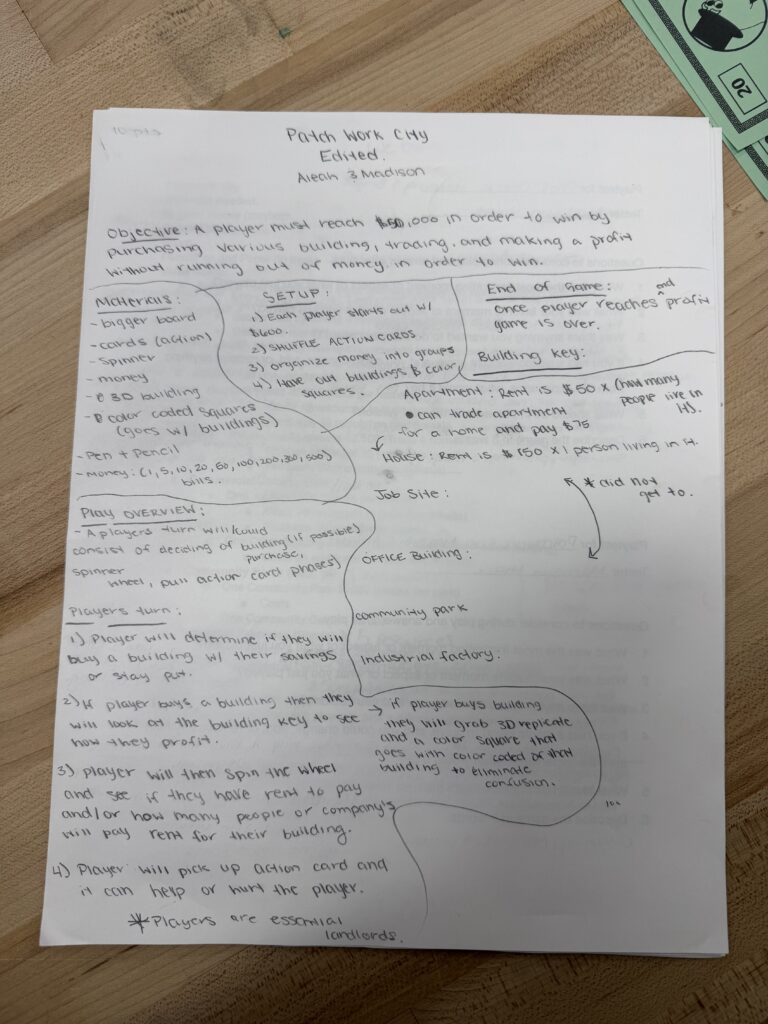 Patch Work City
Edited.
Aleah & Madison
Objective: A player must reach $50,000 in order to win by
purchasing various building, trading, and making a profit
without running out of money in order to win.
Materials:
- bigger board
- cards (action)
- Spinner
- money
- 3D building
- color coded squares
(goes w/ buildings)
- Pen + Pencil
- Money: (1, 5, 10, 20, 50, 100, 200, 300, 500)
bills.
SETUP:
1) Each player starts out w/
$600.
2) SHUFFLE ACTION CARDS
3) organize money into groups
4) Have out buildings & color
squares.
End of Game:
once player reaches end profit
game is over.
Building key:
Apartment: Rent is $50 x (how many
people live in
it).
• can trade apartment
for a home and pay $75
House: Rent is $150 x 1 person living in it.
Job Site:
* did not
get to.
OFFICE Building:
community park
Industrial factory:
Play OVERVIEW:
- A players turn will/could
consist of deciding of building (if possible)
purchase,
spinner
wheel, pull action card phases)
Players turn:
1) Player will determine if they will
buy a building w/ their savings
or stay put.
2) If player buys a building then they
will look at the building key to see
how they profit.
→ if player buys building
they will grab 3D replicate
and a color square that
goes with color coded of that
building to eliminate
confusion.
3) player will then spin the wheel
and see if they have rent to pay
and/or how many people or company's
will pay rent for their building.
4) Player will pick up action card and
it can help or hurt the player.
* Players are essential
landlords.
20